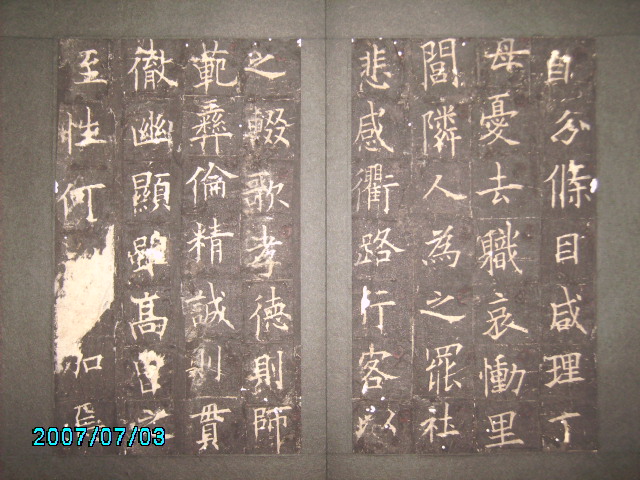 自分條目咸理丁
母憂去職哀慟里
閭隣人為之罷社
悲感衢路行客以
之輟歌孝德則師
範彝倫精誠則貫
徹幽顯雖髙
至性何加焉
2007/07/03